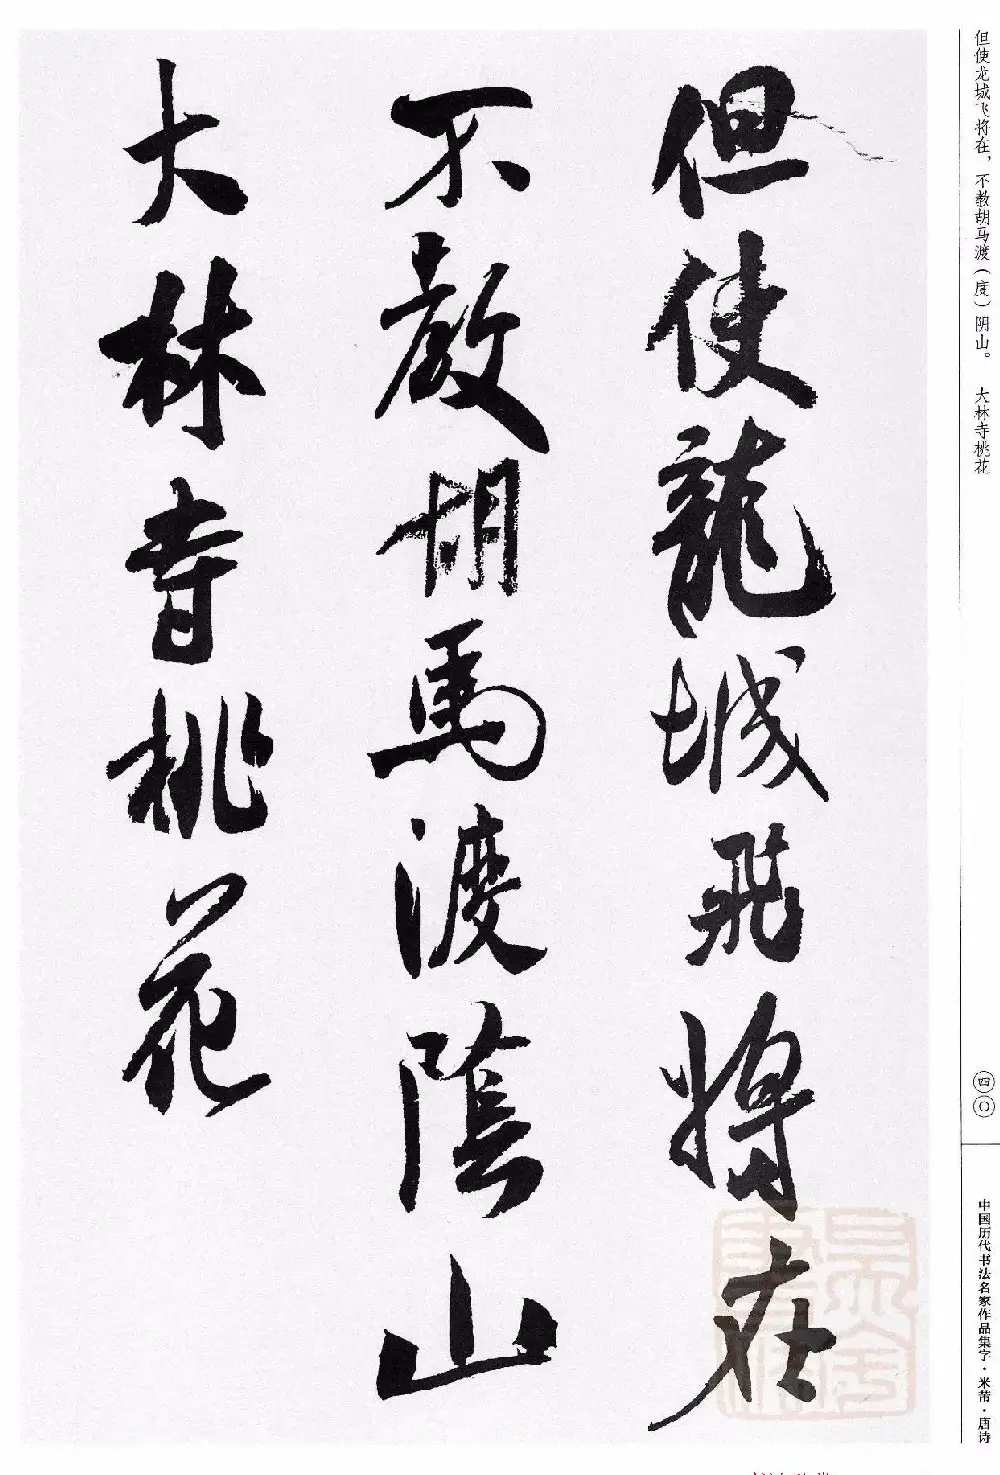 但使龙城飞将在，不教胡马渡（度）阴山。 大林寺桃花
四〇
中国历代书法名家作品集字·米芾·唐诗
但使龍城飛將在
不教胡馬渡陰山
大林寺桃花